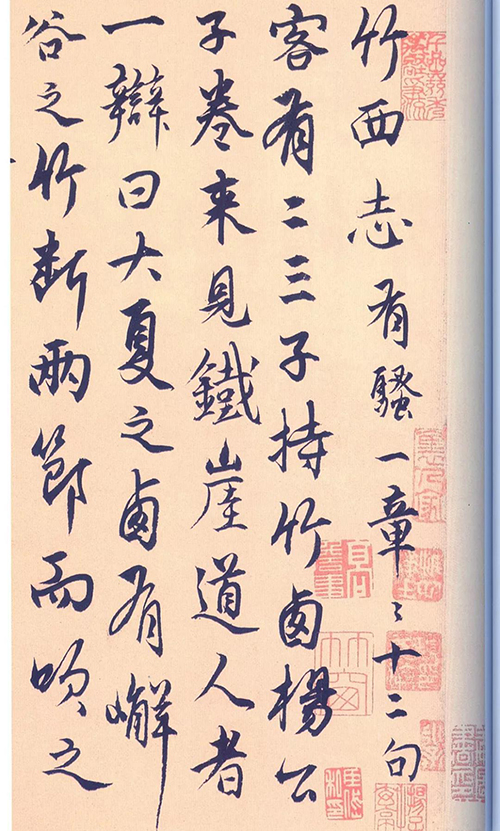 竹西志有騷一章〻十二句
客有二三子持竹卥楊公
子卷来見鐵崖道人者
一辯曰大夏之卥有嶰
谷之竹斷兩節而吹之